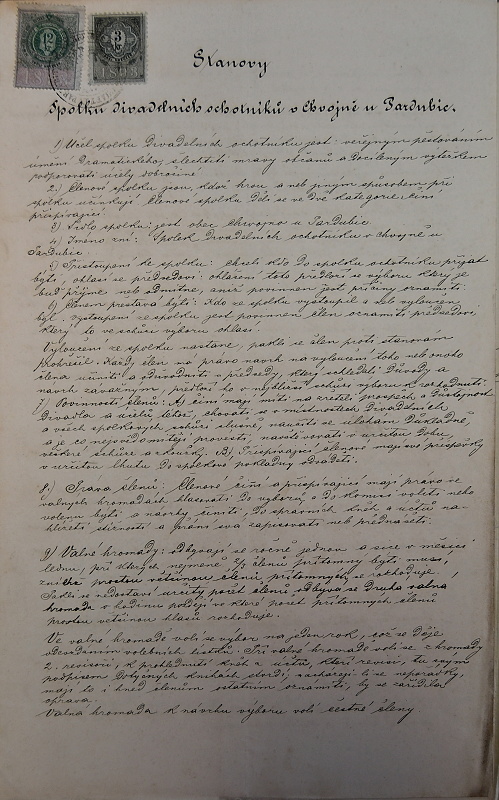 12
3
1898
Stanovy
Spolku divadelních ochotníků v Chvojně u Pardubic.
1) Účel spolku Divadelních ochotníků jest: veřejným pěstováním
umění Dramatického, šlechtiti mravy občanů a docíleným výtěžkem
podporovati účely dobročinné.
2.) Členové spolku jsou, kdož hrou a neb jiným způsobem při
spolku účinkují. Členové spolku dělí se ve dvě kategorie: činní
přispívající
3) Sídlo spolku: jest obec Chvojno u Pardubic
4) Jméno zní: Spolek Divadelních ochotníků v Chvojně u
Pardubic.
5) Přistoupení ke spolku: Chceli kdo do spolku ochotníků přijat
býti, ohlásí se předsedovi; ohlášení toto předloží se výboru který je
buď přijme neb odmítne, aniž povinnen jest příčiny oznámiti.
6) Členem přestává býti: Kdo ze spolku vystoupil a neb vyloučen
byl. Vystoupení ze spolku jest povinnen člen oznámiti předsedovi,
který to ve schůzi výboru ohlásí.
Vyloučení ze spolku nastane, pakli se člen proti stanovám
prohřešil. Každý člen má právo návrh na vyloučení toho neb onoho
člena učiniti a odůvodniti u předsedy, který shledáli Důvody a
návrh závažným, předloží to v nejbližší schůzi výboru k rozhodnutí.
7) Povinnosti členů: A) činní mají míti na zřeteli prospěch a Důstojnost
Divadla a účelů téhož, chovati se v místnostech Divadelních
a všech spolkových schůzí slušně, naučiti se úlohám Důkladně,
a je co nejsvědomitěji provésti, navštěvovati v určitou Dobu
veškeré schůze a zkoušky. B) Přispívající členové mají své příspěvky
v určitou lhůtu do spolkové pokladny odváděti.
8) Práva členů: Členové činní a přispívající mají právo ve
valných hromadách hlasovati Do výborů a Do komisí voliti nebo
voleni býti a návrhy činiti, Do správních kněh a účtů na-
hlížeti stížnosti a přání svá zapisovati neb přednášeti.
9) Valné hromady: odbývají se ročně jednou a sice v měsíci
lednu, při kterých nejméně členů přítomny býti musí,
prostou většinou členů přítomných se rozhoduje.
Pakli se nedostaví určitý počet členů odbývá se Druhá valná
hromada o hodinu později ve které počet přítomných členů
prostou většinou hlasů rozhoduje.
Ve valné hromadě volí se výbor na jeden rok, což se Děje
odevzdáním volebních lístků. Při valné hromadě volí se z hromady
2. revisoři, k prohlédnutí kněh a účtů, kteří revisi, tu svým
podpisem Dotyčných knihách stvrdí; nacházejí li se nepořádky,
mají to i hned členům ostatním oznámiti, by se zařídila
oprava.
Valná hromada k návrhu výboru volí čestné členy.